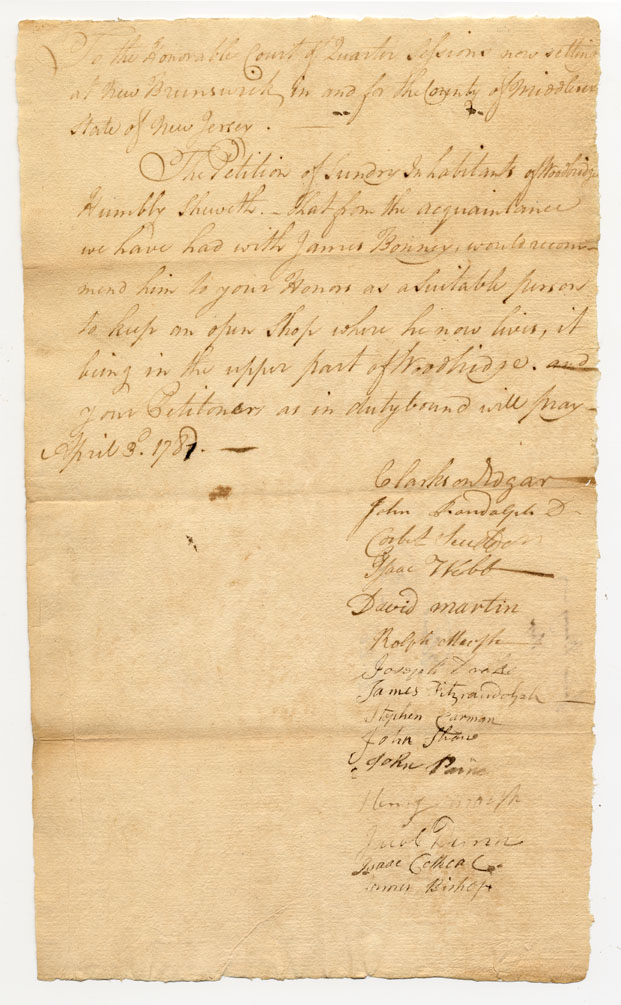 To the Honorable Court of Quarter Sessions now setting
at New Brunswick, In and for the County of Middlesex
State of New Jersey. —
The Petition of Sundry Inhabitants of Woodbridge
Humbly Sheweth. – that from the acquaintance
we have had with James Bonney, would recom-
mend him to your Honors as a Suitable person
to keep an open Shop where he now lives, it
being in the upper part of Woodbridge. and
your Petitoners as in duty bound will pray –
April 3d. 1787. —
Clarkson Edgar
John Randolph D –
Corbet
Isaac Webb
David martin
Ralph Marsh
Joseph Drake
James Fitzrandolph
Stephen Carman
John Shove
John Paine
Henry Marsh
Jacob Dunn
Isaac Cotheal
James Bishop